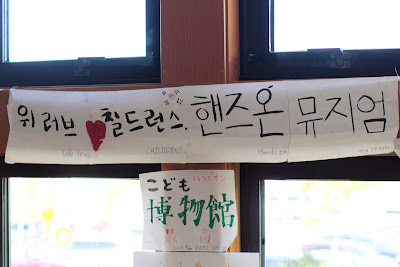 위 러브 칠드런스 핸즈온 뮤지엄
We love CHILDRENS Hands on museum
こども ハンズオン
博物館